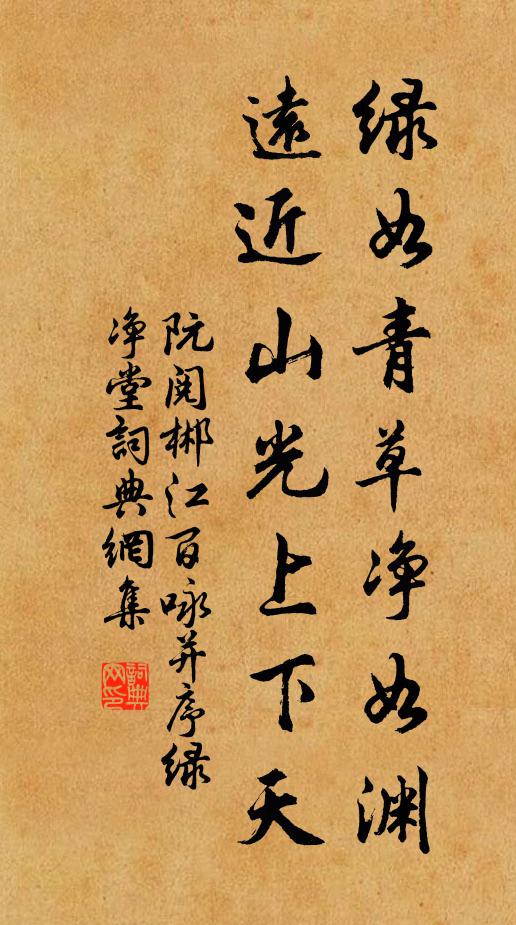 绿如青草净如渊
遠近山光上下天
阮阅郴江百咏并序绿
净堂詞典網集
詞典网印